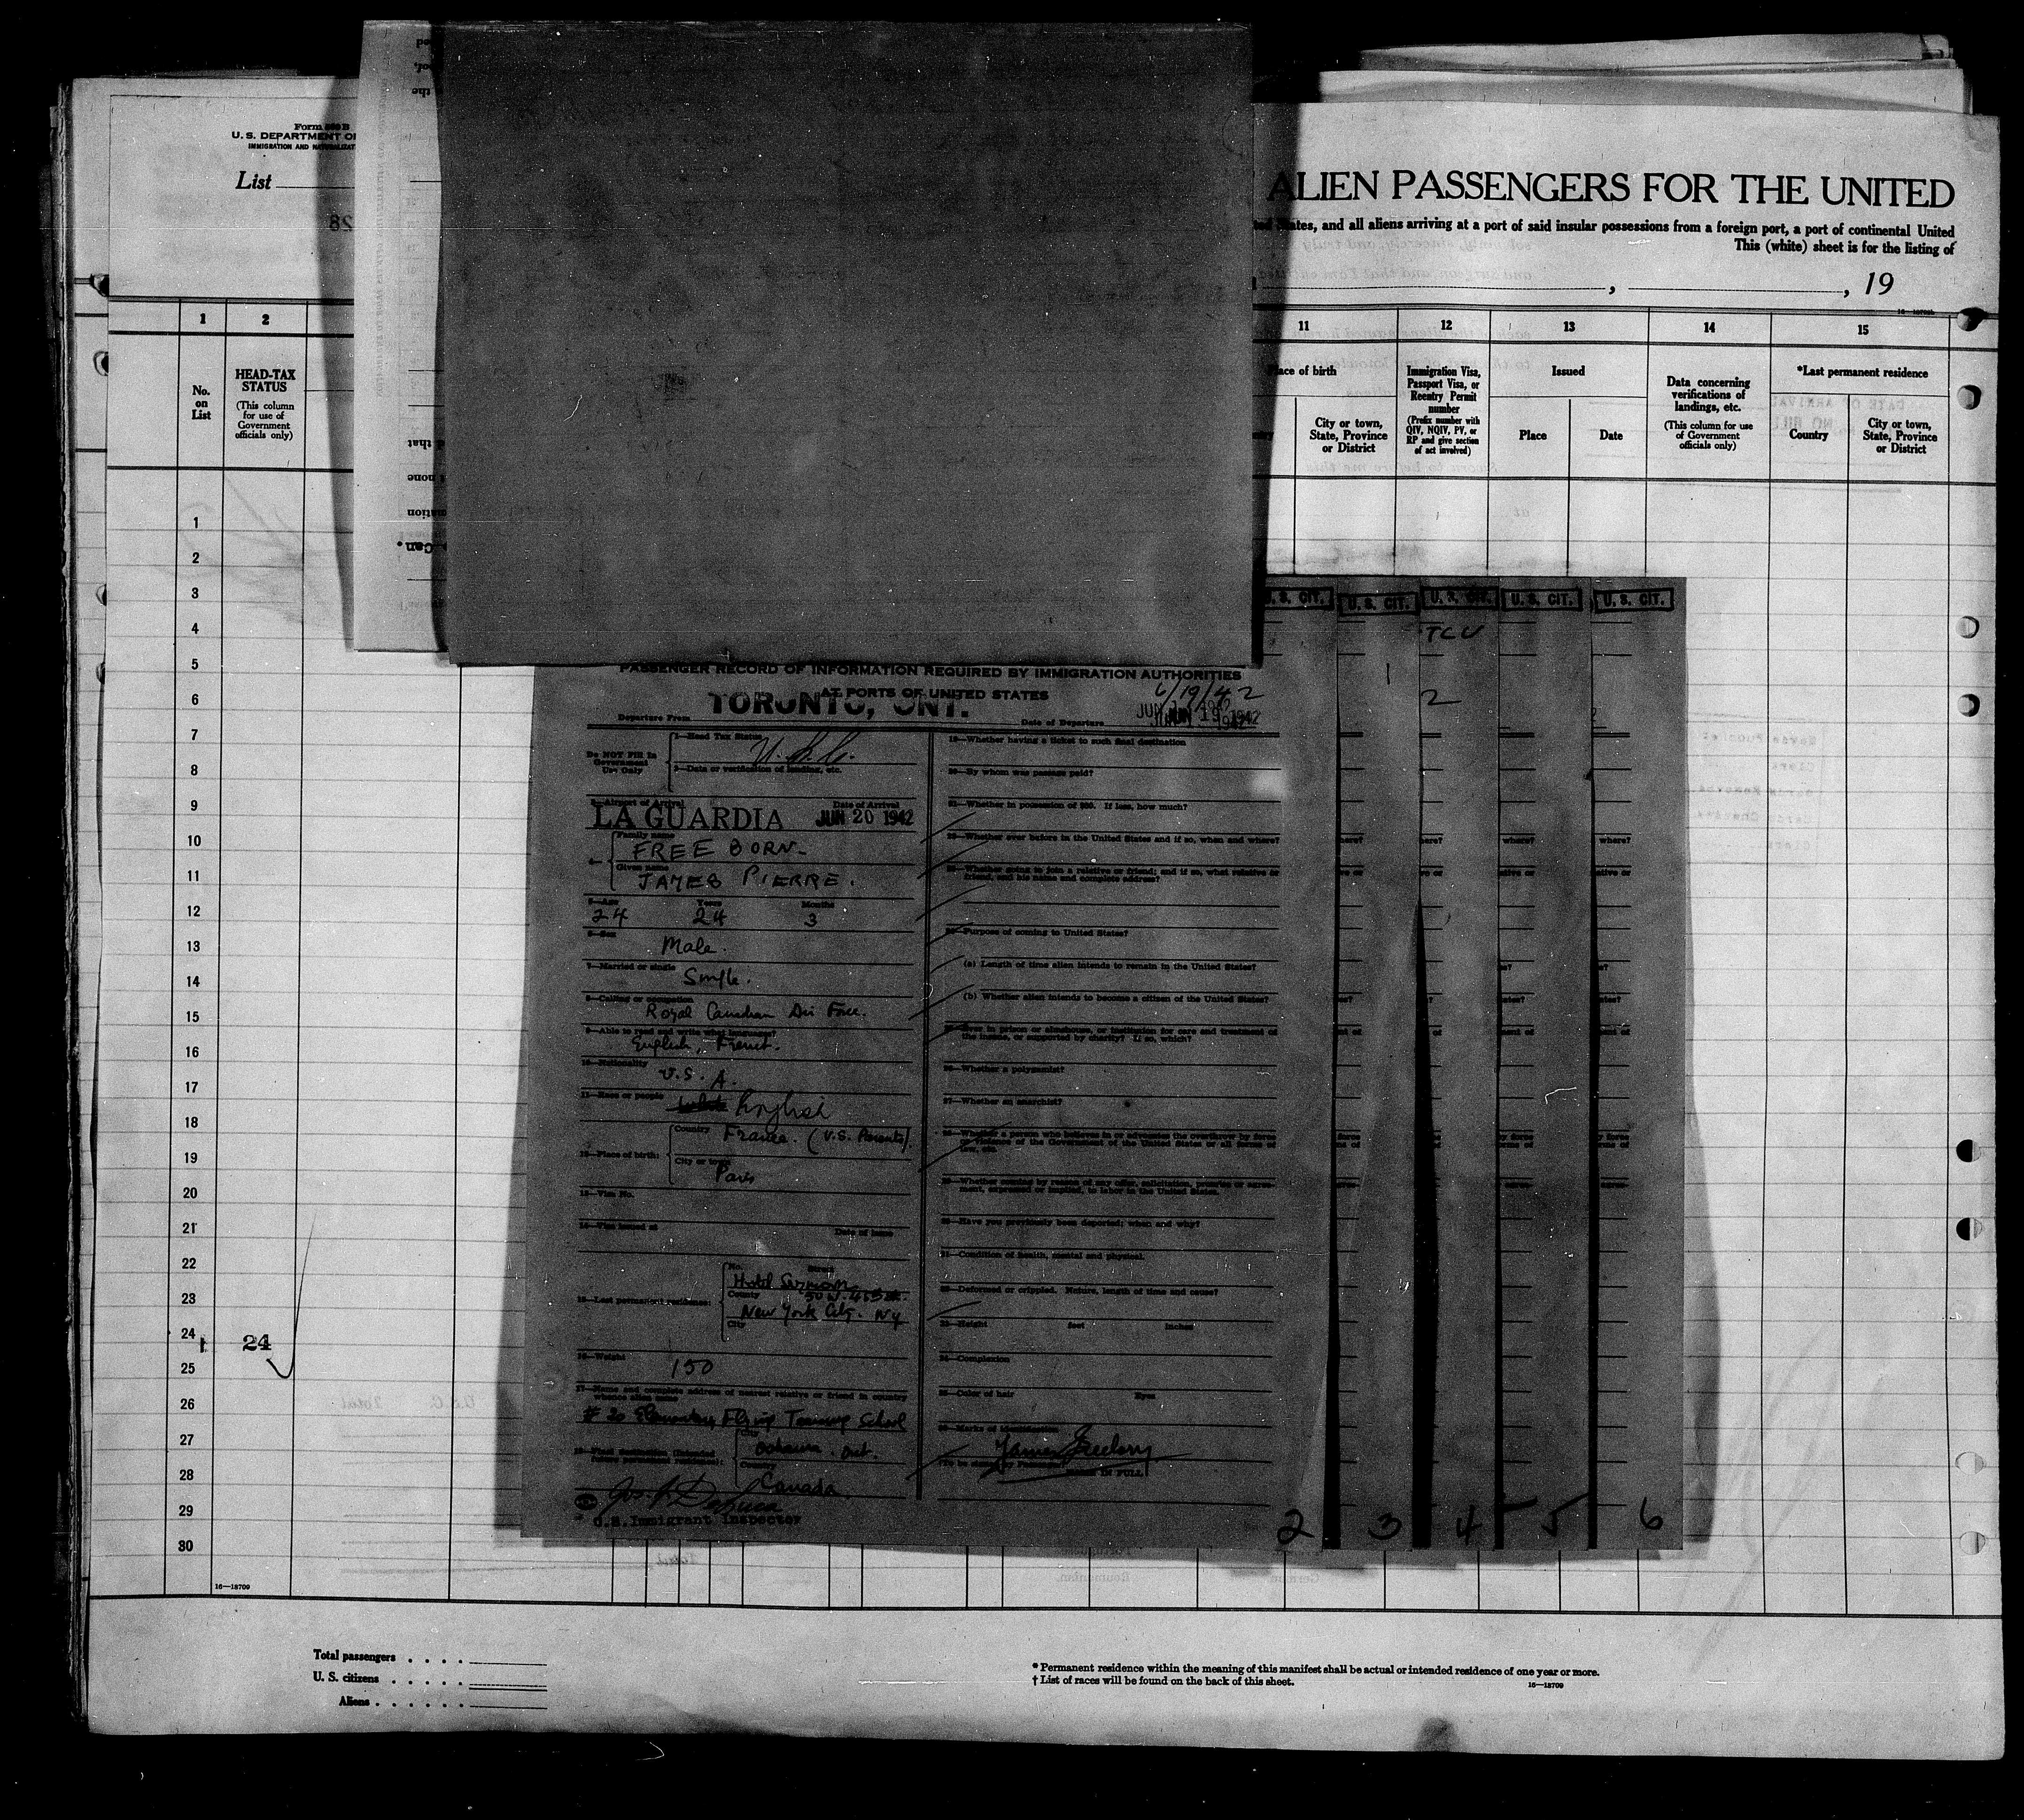 Form 500 B
U. S. DEPARTMENT OF
IMMIGRATION AND NATURALIZAT
List
ALIEN PASSENGERS FOR THE UNITED
ted States, and all aliens arriving at a port of said insular possessions from a foreign port, a port of continental United
This (white) sheet is for the listing of
, , 19
16—18709
1 2 11 12 13 14 15
No. on List
HEAD-TAX STATUS
(This column for use of Government officials only)
lace of birth
City or town, State, Province or District
Immigration Visa, Passport Visa, or Reentry Permit number
(Prefix number with QIV, NQIV, PV, or RP and give section of act involved)
Issued
Place
Date
Data concerning verifications of landings, etc.
(This column for use of Government officials only)
*Last permanent residence
Country
City or town, State, Province or District
1
2
3
4
5
6
7
8
9
10
11
12
13
14
15
16
17
18
19
20
21
22
23
24
25
26
27
28
29
30
24
U. S. CIT. U. S. CIT. U. S. CIT. U. S. CIT. U. S. CIT.
TCU
1
2
PASSENGER RECORD OF INFORMATION REQUIRED BY IMMIGRATION AUTHORITIES
AT PORTS OF UNITED STATES
TORONTO, ONT.
6/19/42
JUN 19 1942
Departure From
Date of Departure
Do NOT Fill In Government Use Only
1—Head Tax Status
U.S.C.
2—Data or verification of landing, etc.
3—Airport of Arrival
Date of Arrival
LA GUARDIA JUN 20 1942
Family name
FREEBORN
Given name
JAMES PIERRE.
5—Age Years Months
24 24 3
6—Sex
Male.
7—Married or single
Single.
8—Calling or occupation
Royal Canadian Air Force.
9—Able to read and write what language?
English, French.
10—Nationality
U.S.A.
11—Race or people
English
12—Place of birth:
Country
France. (U.S. Parents)
City or town
Paris
13—Visa No.
14—Visa issued at
Date of issue
15—Last permanent residence:
No. Street
Hotel
County
New York City. NY
City
16—Weight
150
17—Name and complete address of nearest relative or friend in country whence alien came
# 20 Elementary Flying Training School
18—Final destination (intended future permanent residence):
City
Oshawa. Ont.
Country
Canada.
U.S. Immigrant Inspector
19—Whether having a ticket to such final destination
20—By whom was passage paid?
21—Whether in possession of $50. If less, how much?
22—Whether ever before in the United States and if so, when and where?
23—Whether going to join a relative or friend; and if so, what relative or friend, and his name and complete address?
24—Purpose of coming to United States?
(a) Length of time alien intends to remain in the United States?
(b) Whether alien intends to become a citizen of the United States?
25—Ever in prison or almshouse, or institution for care and treatment of the insane, or supported by charity? If so, which?
26—Whether a polygamist?
27—Whether an anarchist?
28—Whether a person who believes in or advocates the overthrow by force or violence of the Government of the United States or all forms of law, etc.
29—Whether coming by reason of any offer, solicitation, promise or agreement, expressed or implied, to labor in the United States.
30—Have you previously been deported; when and why?
31—Condition of health, mental and physical.
32—Deformed or crippled. Nature, length of time and cause?
33—Height feet inches
34—Complexion
35—Color of hair Eyes
36—Marks of identification
(To be signed by Passenger)
NAME IN FULL
2 3 4 5 6
16—18709
Total passengers
U. S. citizens
Aliens
* Permanent residence within the meaning of this manifest shall be actual or intended residence of one year or more.
† List of races will be found on the back of this sheet.
16—18709